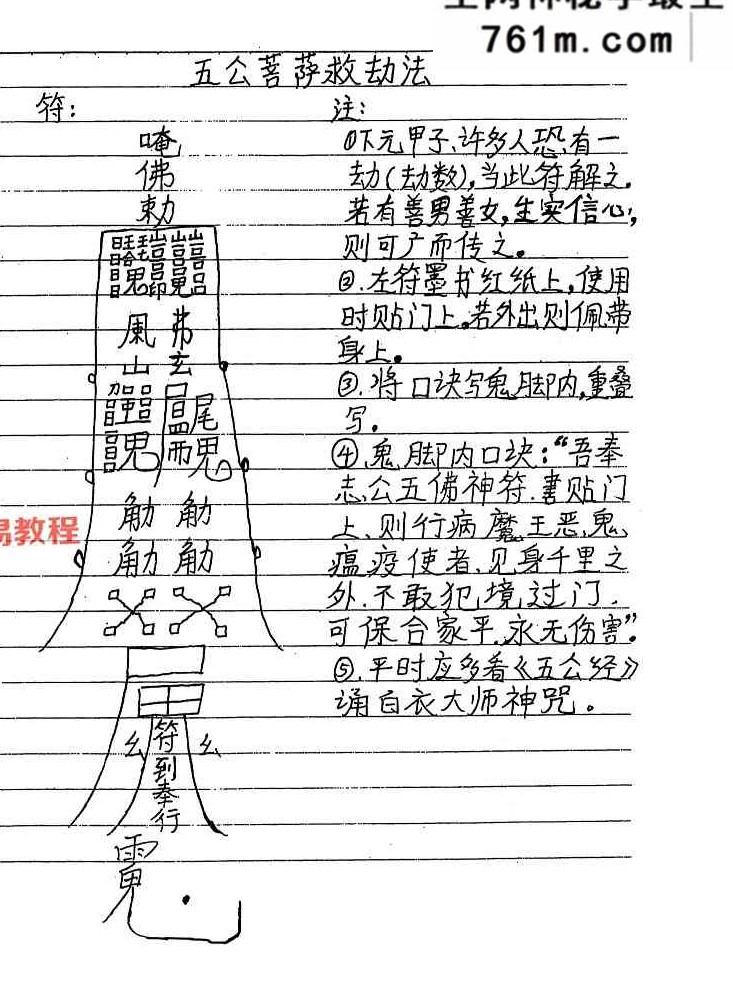 761m.com
五公菩萨救劫法
符：
唵
佛
勅
風
山
弗
玄
角力 角力
角力 角力
符
到
奉
行
注：
①下元甲子、许多人恐有一
劫(劫数)，当此符解之。
若有善男善女，生实信心；
则可广而传之。
②.左符墨书红纸上，使用
时贴门上。若外出则佩带
身上。
③.将口诀写鬼脚内，重叠
写。
④.鬼脚内口诀：“吾奉
志公五佛神符.書贴门
上、则行病魔王恶鬼
瘟疫使者、见身千里之
外.不敢犯境过门.
可保合家平.永无伤害”。
⑤.平时应多看《五公经》
诵白衣大师神咒。
易教程